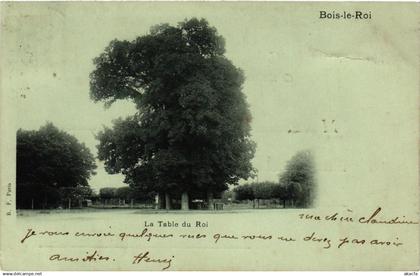 Bois-le-Roi
B. F. Paris
La Table du Roi
ma chère Claudine
Je vous envoie quelques vues que vous ne devez pas avoir
amitiés. Henri